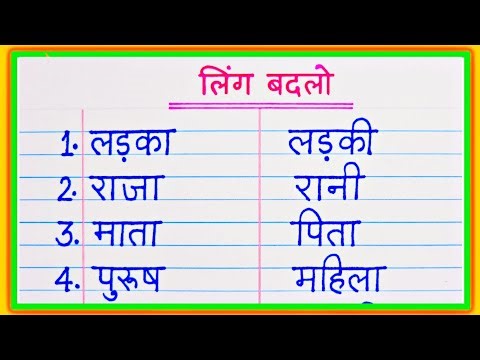 लिंग बदलो
1. लड़का लड़की
2. राजा रानी
3. माता पिता
4. पुरूष महिला